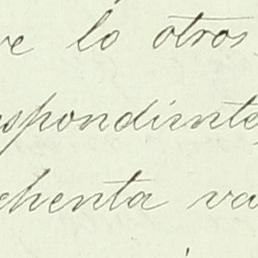 ve lo otros
spondiente
chenta va